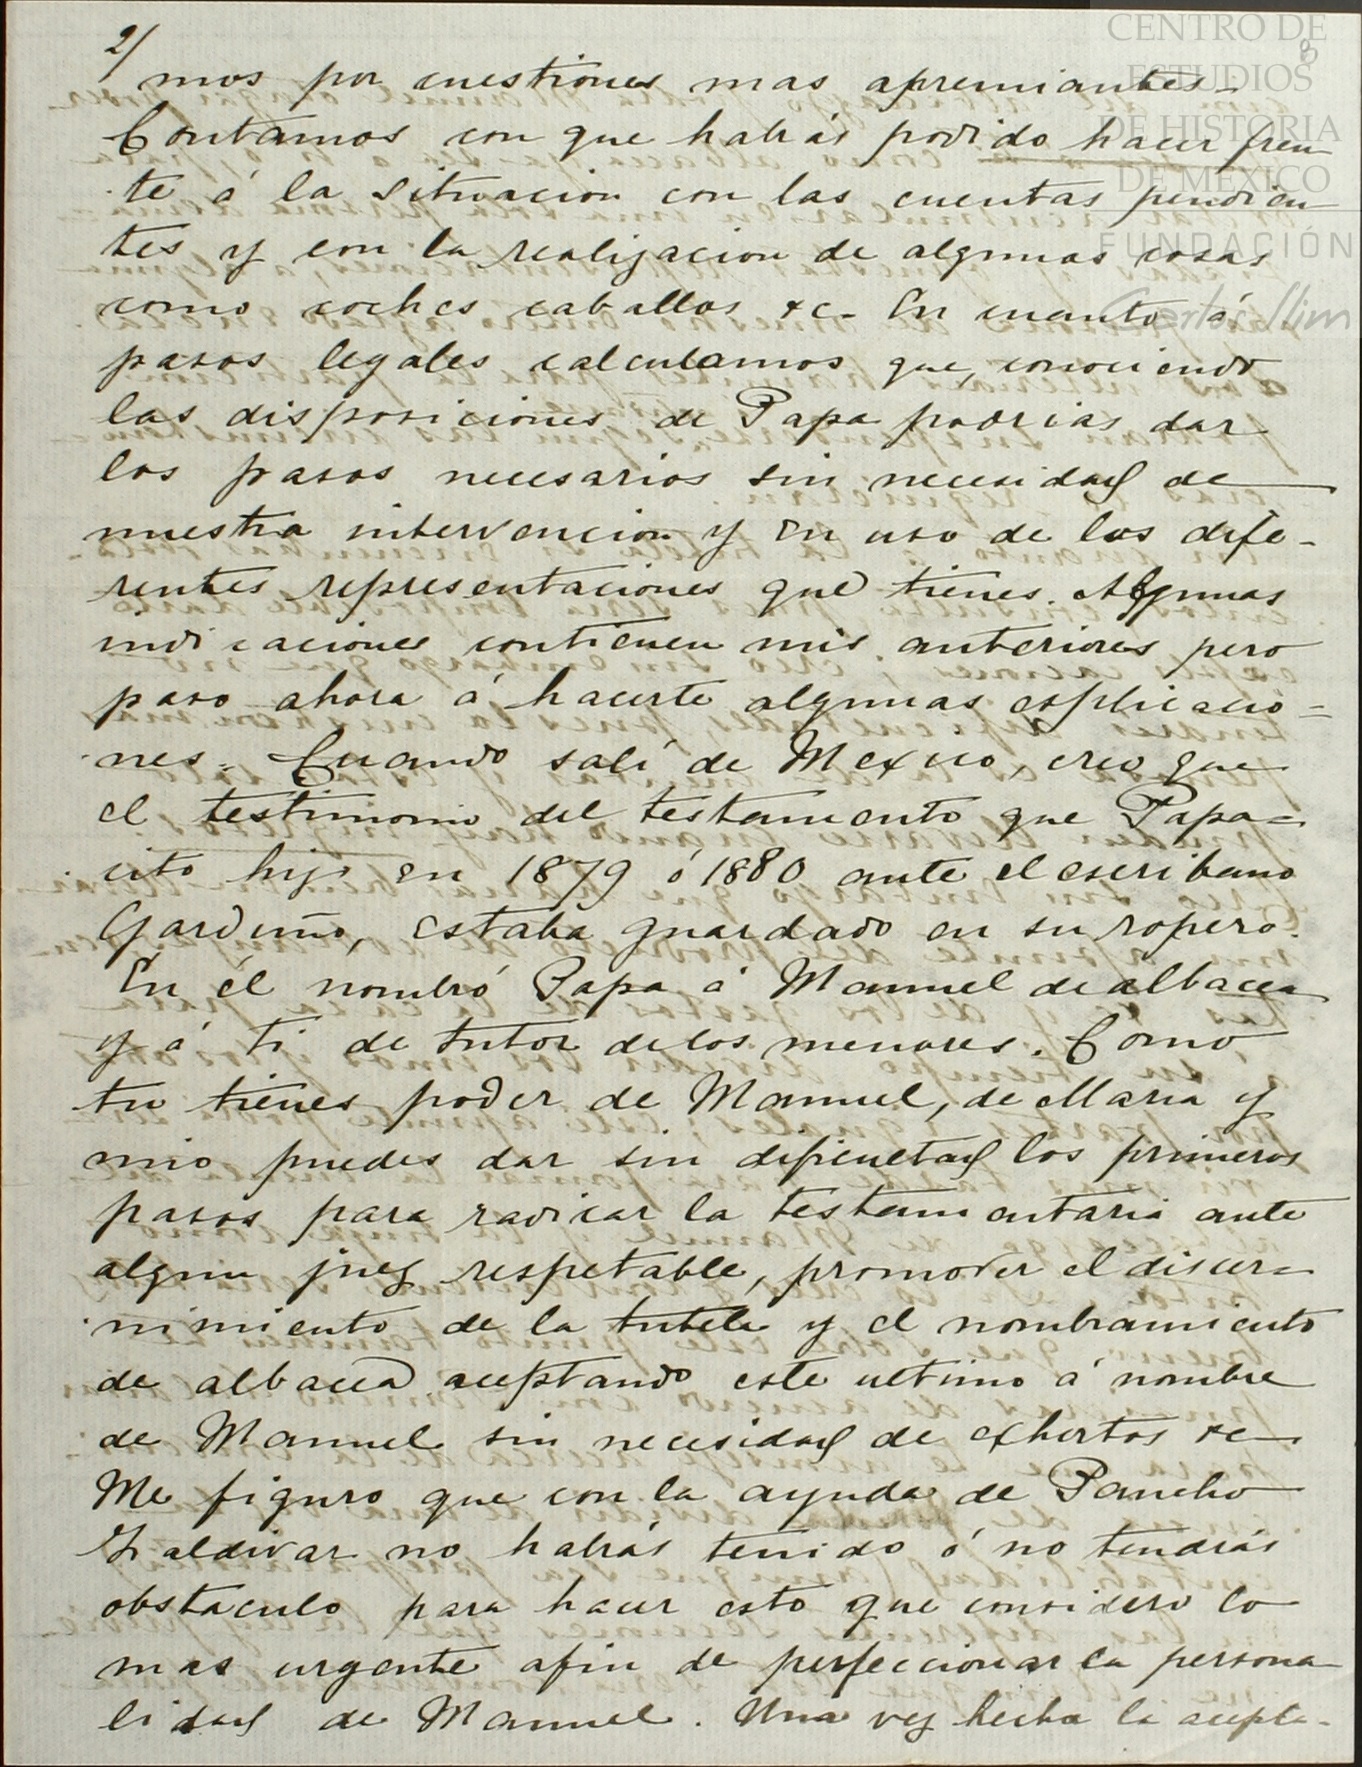 CENTRO DE
ESTUDIOS
DE HISTORIA
DE MÉXICO
FUNDACIÓN
Carlos Slim
8
2/
mos por cuestiones mas apremiantes-
Contamos con que habrás podido hacer fren
te á la situacion con las cuentas pendien
tes y con la realizacion de algunas cosas
como coches caballos &c- En cuanto á
pasos legales calculamos que, conociendo
las disposiciones de Papa podrias dar
los pasos necesarios sin necesidad de
nuestra intervencion y en uso de las dife-
rentes representaciones que tienes. Algunas
indicaciones contienen mis anteriores pero
paso ahora á hacerte algunas esplicacio=
nes. Cuando salí de Mexico, creo que
el testimonio del testamento que Papa=
cito hizo en 1879 ó 1880 ante el escribano
Garduño, estaba guardado en su ropero.
En él nombró Papa á Manuel de albacea
y á ti de tutor de los menores. Como
tu tienes poder de Manuel, de Maria y
mio puedes dar sin dificultad los primeros
pasos para radicar la testamentaria ante
algun juez respetable, promover el discer=
nimiento de la tutela y el nombramiento
de albacea aceptando este ultimo á nombre
de Manuel sin necesidad de exhortos &c-
Me figuro que con la ayuda de Pancho
Zaldivar no habrás tenido ó no tendrás
obstaculo para hacer esto que considero lo
mas urgente afin de perfeccionar la persona
lidad de Manuel. Una vez hecha la acepta-